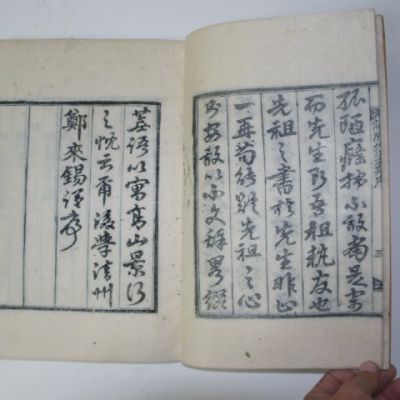 孤陋癃拙不敢當是寄
而先生乃吾祖執友也
先祖之書於先生非止
一再苟能體先祖之心
安敢以不文辭略綴
語以寓高山景行
之忱云爾後學清州
鄭來錫謹序